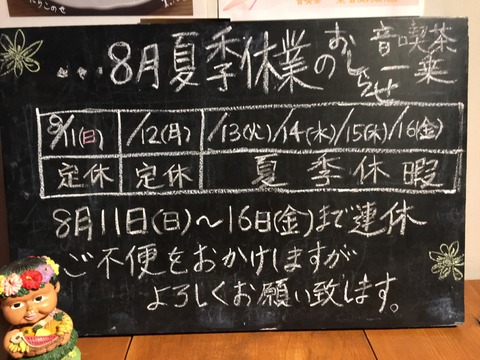 …8月夏季休業のおしらせ
音喫茶
一葉
8/11(日) /12(月) /13(火) /14(水) /15(木) /16(金)
定休 定休 夏季休暇
8月11日(日)～16日(金)まで連休
ご不便をおかけしますが
よろしくお願い致します。